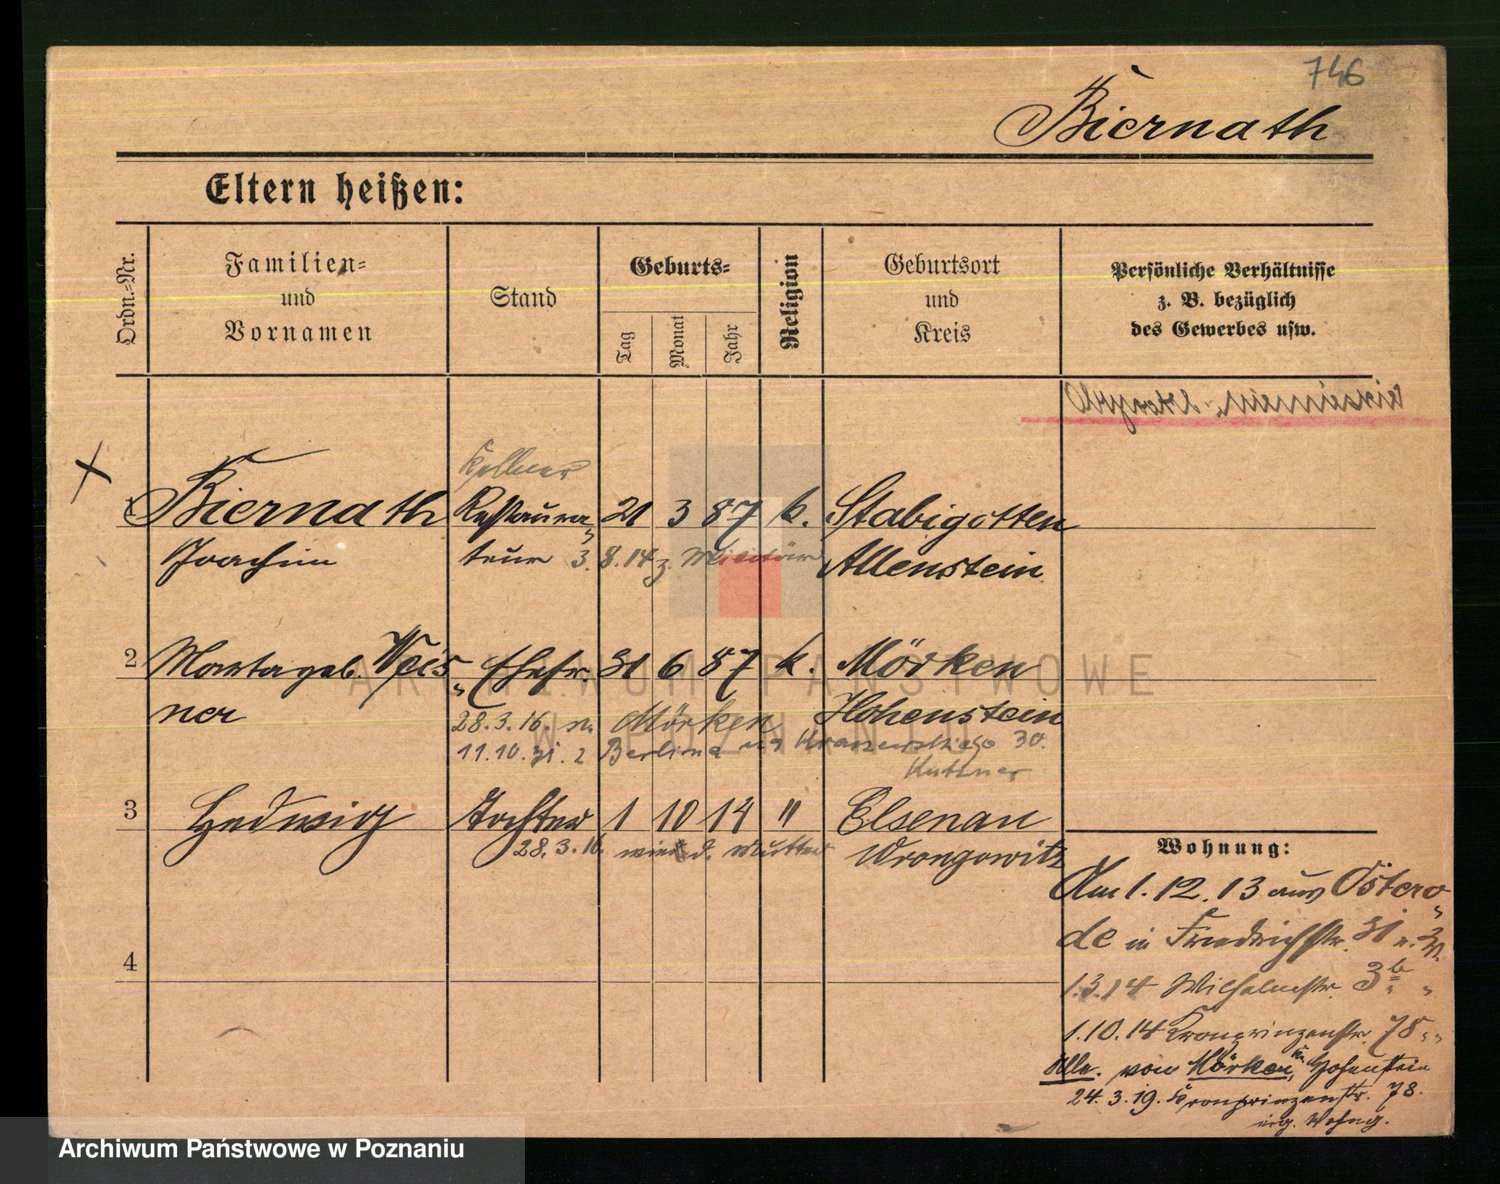 746
Biernath
Eltern heißen:
Ordn.-Nr.
Familien-
und
Vornamen
Stand
Geburts-
Tag
Monat
Jahr
Religion
Geburtsort
und
Kreis
Persönliche Verhältnisse
z. B. bezüglich
des Gewerbes usw.
Kellner
1 Biernath Restaura- 21 3 87 k. Stabigotten
Joachim teur 3. 8. 14 z. Militär Allenstein
2 Marta geb. Weis- Ehefr. 31 6 87 k. Mörken
ner Hohenstein
28.3.16. n. Mörken
11.10. 31. z Berlina na Kraszewskiego 30.
Kuttner
3 Hedwig Tochter 1 10 14 " Elsenau
28.3.16. mit d. Mutter Wrongowitz
4
Wohnung:
Am 1.12.13 aus Ostero-
de in Friedrichstr. 31
1.3.14 Wilhelmstr. 3b
1.10.14 Kronprinzenstr. 78
Alle. von Mörken, Hohenstein
24.3.19. Kronprinzenstr. 78.
eig. Wohng.
ARCHIWUM PAŃSTWOWE
W POZNANIU
Archiwum Państwowe w Poznaniu